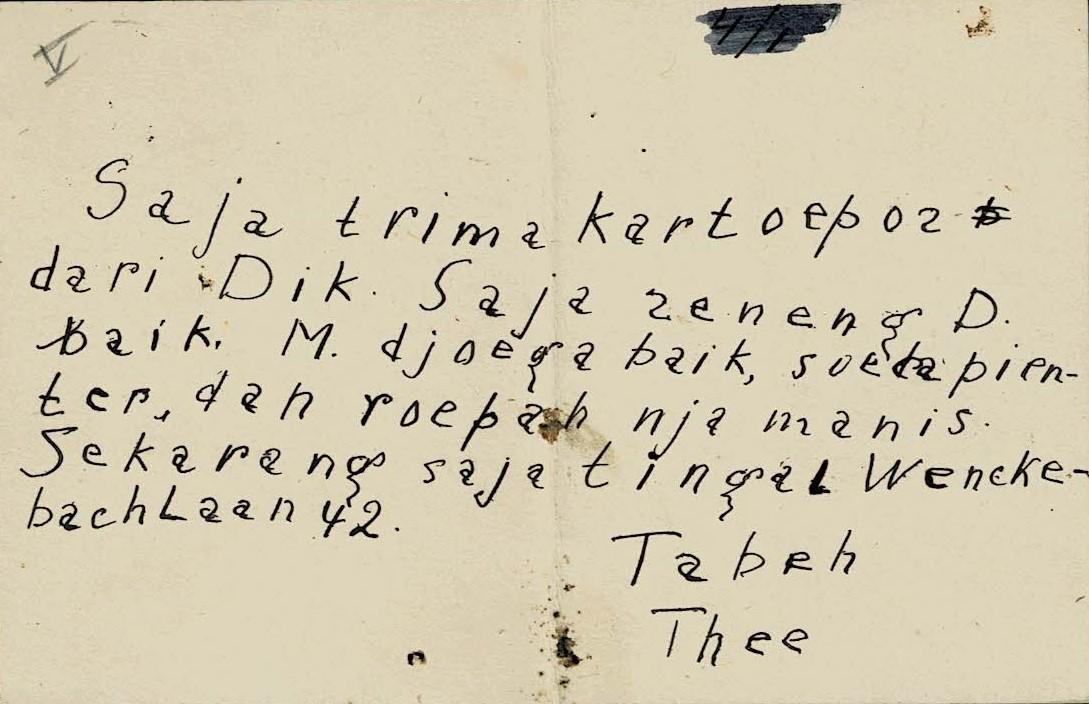 V
4/1
Saja trima kartoepos
dari Dik. Saja seneng D.
baik. M. djoega baik, soeda pien-
ter, dan roepah nja manis.
Sekarang saja tingal Wencke-
bachLaan 42.
Tabeh
Thee